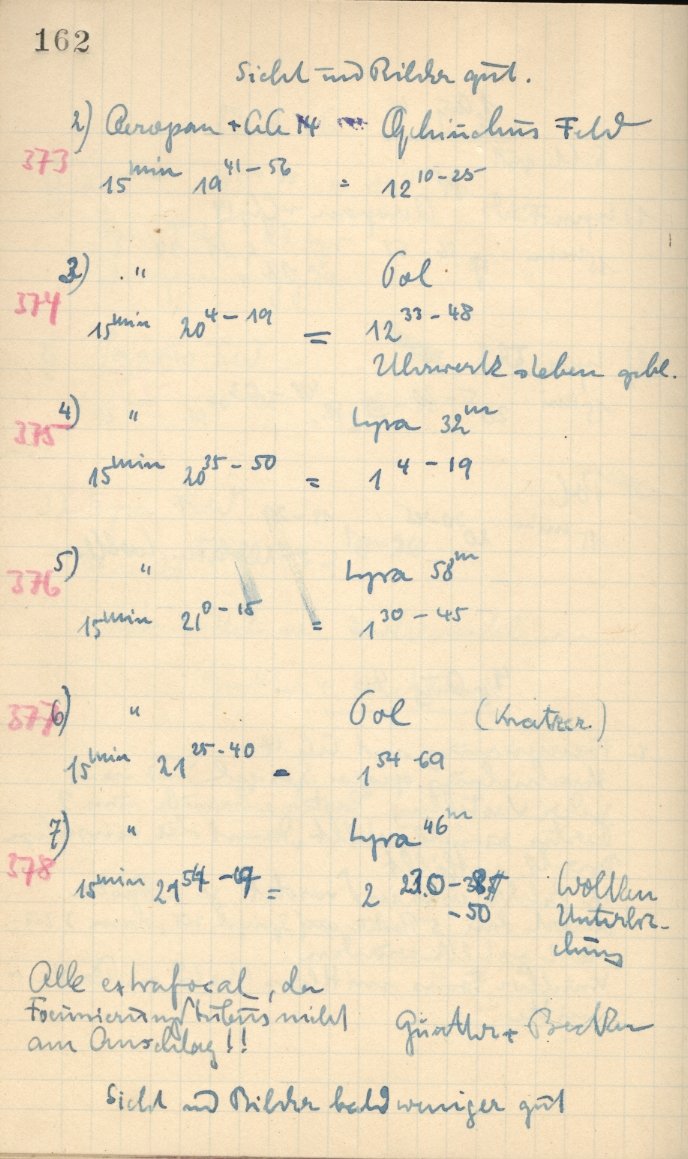 162
Sicht und Bilder gut.
2) Aeropan + Ophiuchus Feld
373
15min 19 41-56 = 12 10-25
3) " Pol
374
15min 20 4-19 = 12 33-48
Uhrwerk stehen gebl.
4) " Lyra 32m
375
15min 20 35-50 = 1 4-19
5) " Lyra 58m
376
15min 21 0-15 = 1 30-45
6) " Pol (Kratzer)
377
15min 21 25-40 = 1 54-69
7) " Lyra 46m
378
15min 21 54 = 2 Wolken
-50 Unterbre-
chung
Alle extrafocal, da
Focusierung Tubus nicht
am Anschlag!!
Günther + Becker
Sicht und Bilder bald weniger gut